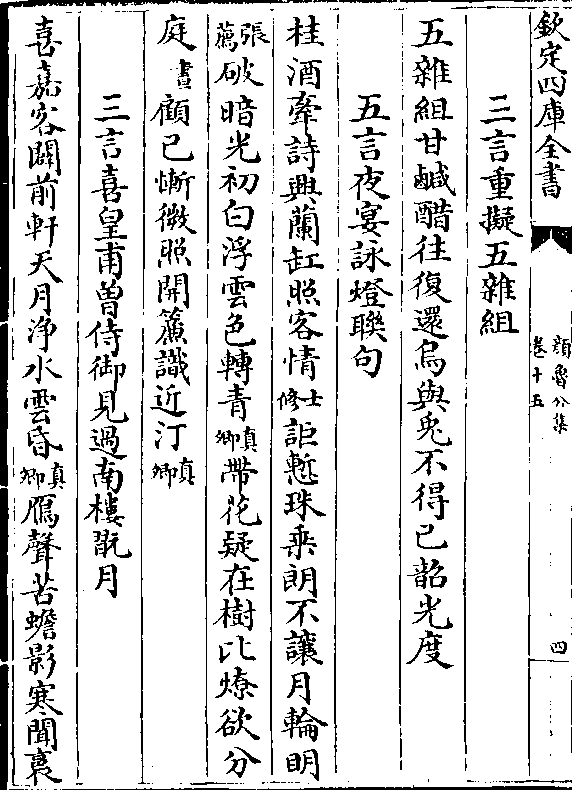 欽定四庫全書
顏魯公集
卷十五
四
三言重擬五雜組
五雜組甘鹹醋往復還烏與兎不得已韶光度
五言夜宴詠燈聯句
桂酒牽詩興蘭缸照客情士修詎慙珠乗朗不讓月輪明
張薦破暗光初白浮雲色轉青真卿帶花疑在樹比燎欲分
庭晝顧已慚微照開簾識近汀真卿
三言喜皇甫曾侍御見過南樓翫月
喜嘉客闢前軒天月浄水雲昏真卿鴈聲苦蟾影寒聞裛